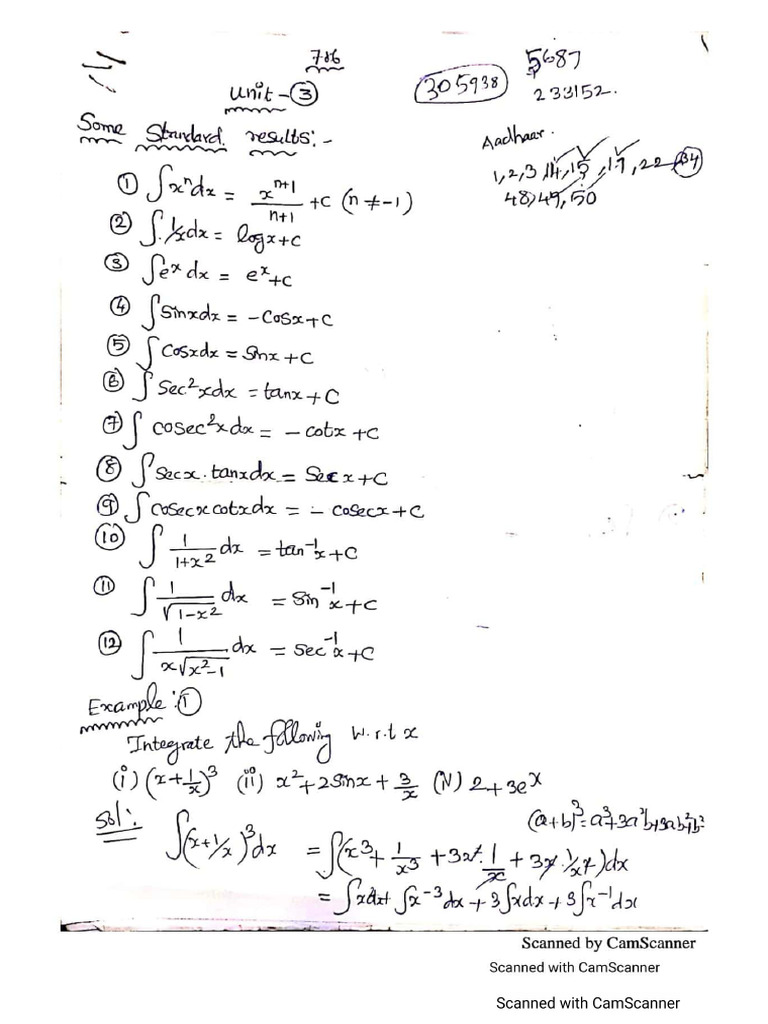 786
Unit - ③
305938
5687
233152.
Some Standard results: -
Aadhaar.
1, 2, 3, 14, 15, 17, 22 34
48, 49, 50
① ∫xⁿdx = xⁿ⁺¹/n+1 + c (n ≠ -1)
② ∫1/x dx = log x + c
③ ∫eˣ dx = eˣ + c
④ ∫sinx dx = -cosx + c
⑤ ∫cosx dx = sinx + c
⑥ ∫sec²x dx = tanx + c
⑦ ∫cosec²x dx = - cotx + c
⑧ ∫secx . tanx dx = Sec x + c
⑨ ∫cosecx cotx dx = - cosecx + c
⑩ ∫ 1/1+x² dx = tan⁻¹x + c
⑪ ∫ 1/√1-x² dx = sin⁻¹x + c
⑫ ∫ 1/x√x²-1 dx = sec⁻¹x + c
Example: ①
Integrate the following w.r.t x
(i) (x + 1/x)³ (ii) x² + 2sinx + 3/x (iv) 2 + 3eˣ
Sol:
(a+b)³ = a³+3a²b+3ab²+b³
∫(x+1/x)³ dx = ∫(x³ + 1/x³ + 3x². 1/x + 3x. 1/x²) dx
= ∫x³dx + ∫x⁻³ dx + 3∫x dx + 3∫x⁻¹ dx
Scanned by CamScanner
Scanned with CamScanner
Scanned with CamScanner